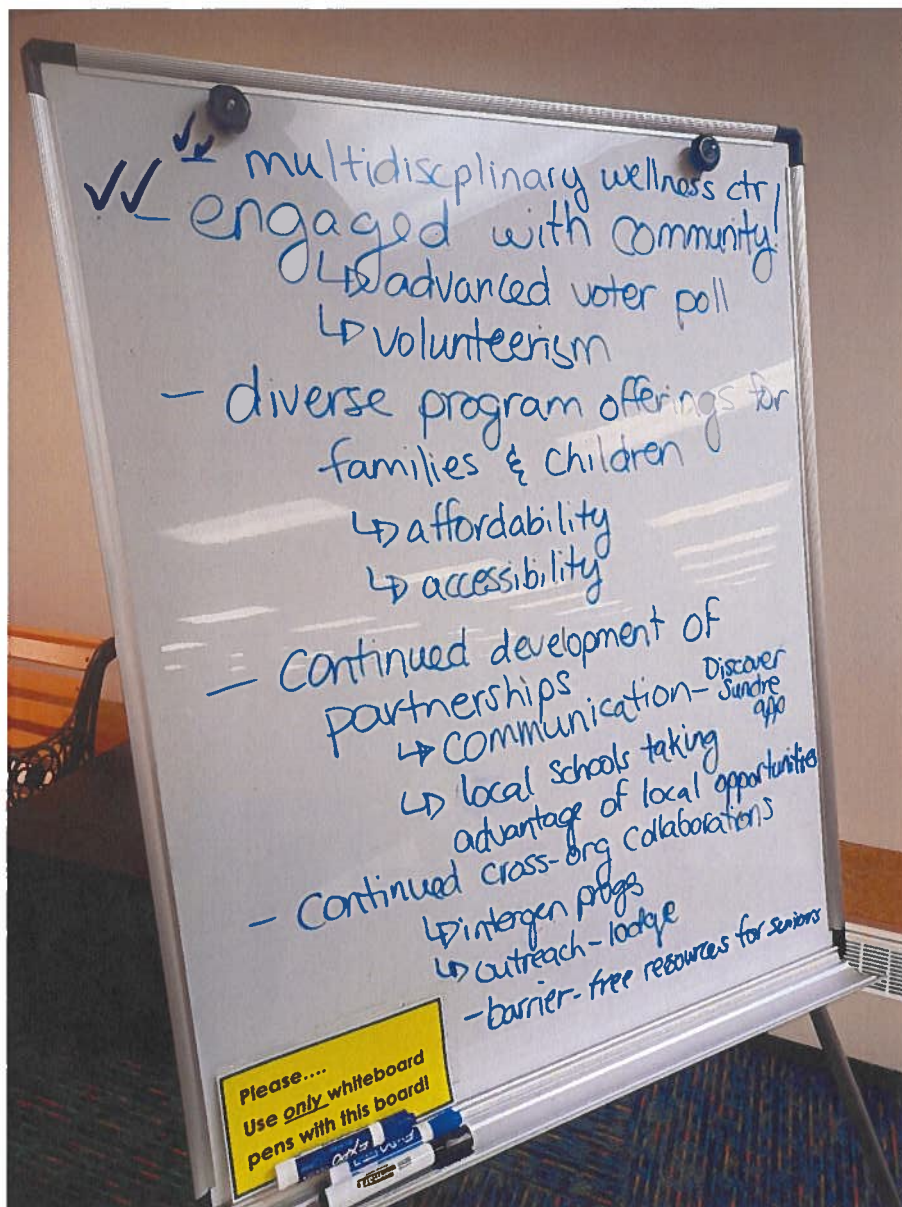 ✓✓ - multidiscplinary wellness ctr
✓✓ - engaged with community!
↳ advanced voter poll
↳ volunteerism
- diverse program offerings for
families & children
↳ affordability
↳ accessibility
- Continued development of
partnerships
↳ communication - Discover
Sundre
app
↳ local schools taking
advantage of local opportunities
- Continued cross-org collaborations
↳ intergen progs
↳ outreach - lodge
- barrier-free resources for seniors
Please....
Use only whiteboard
pens with this board!
EXPO